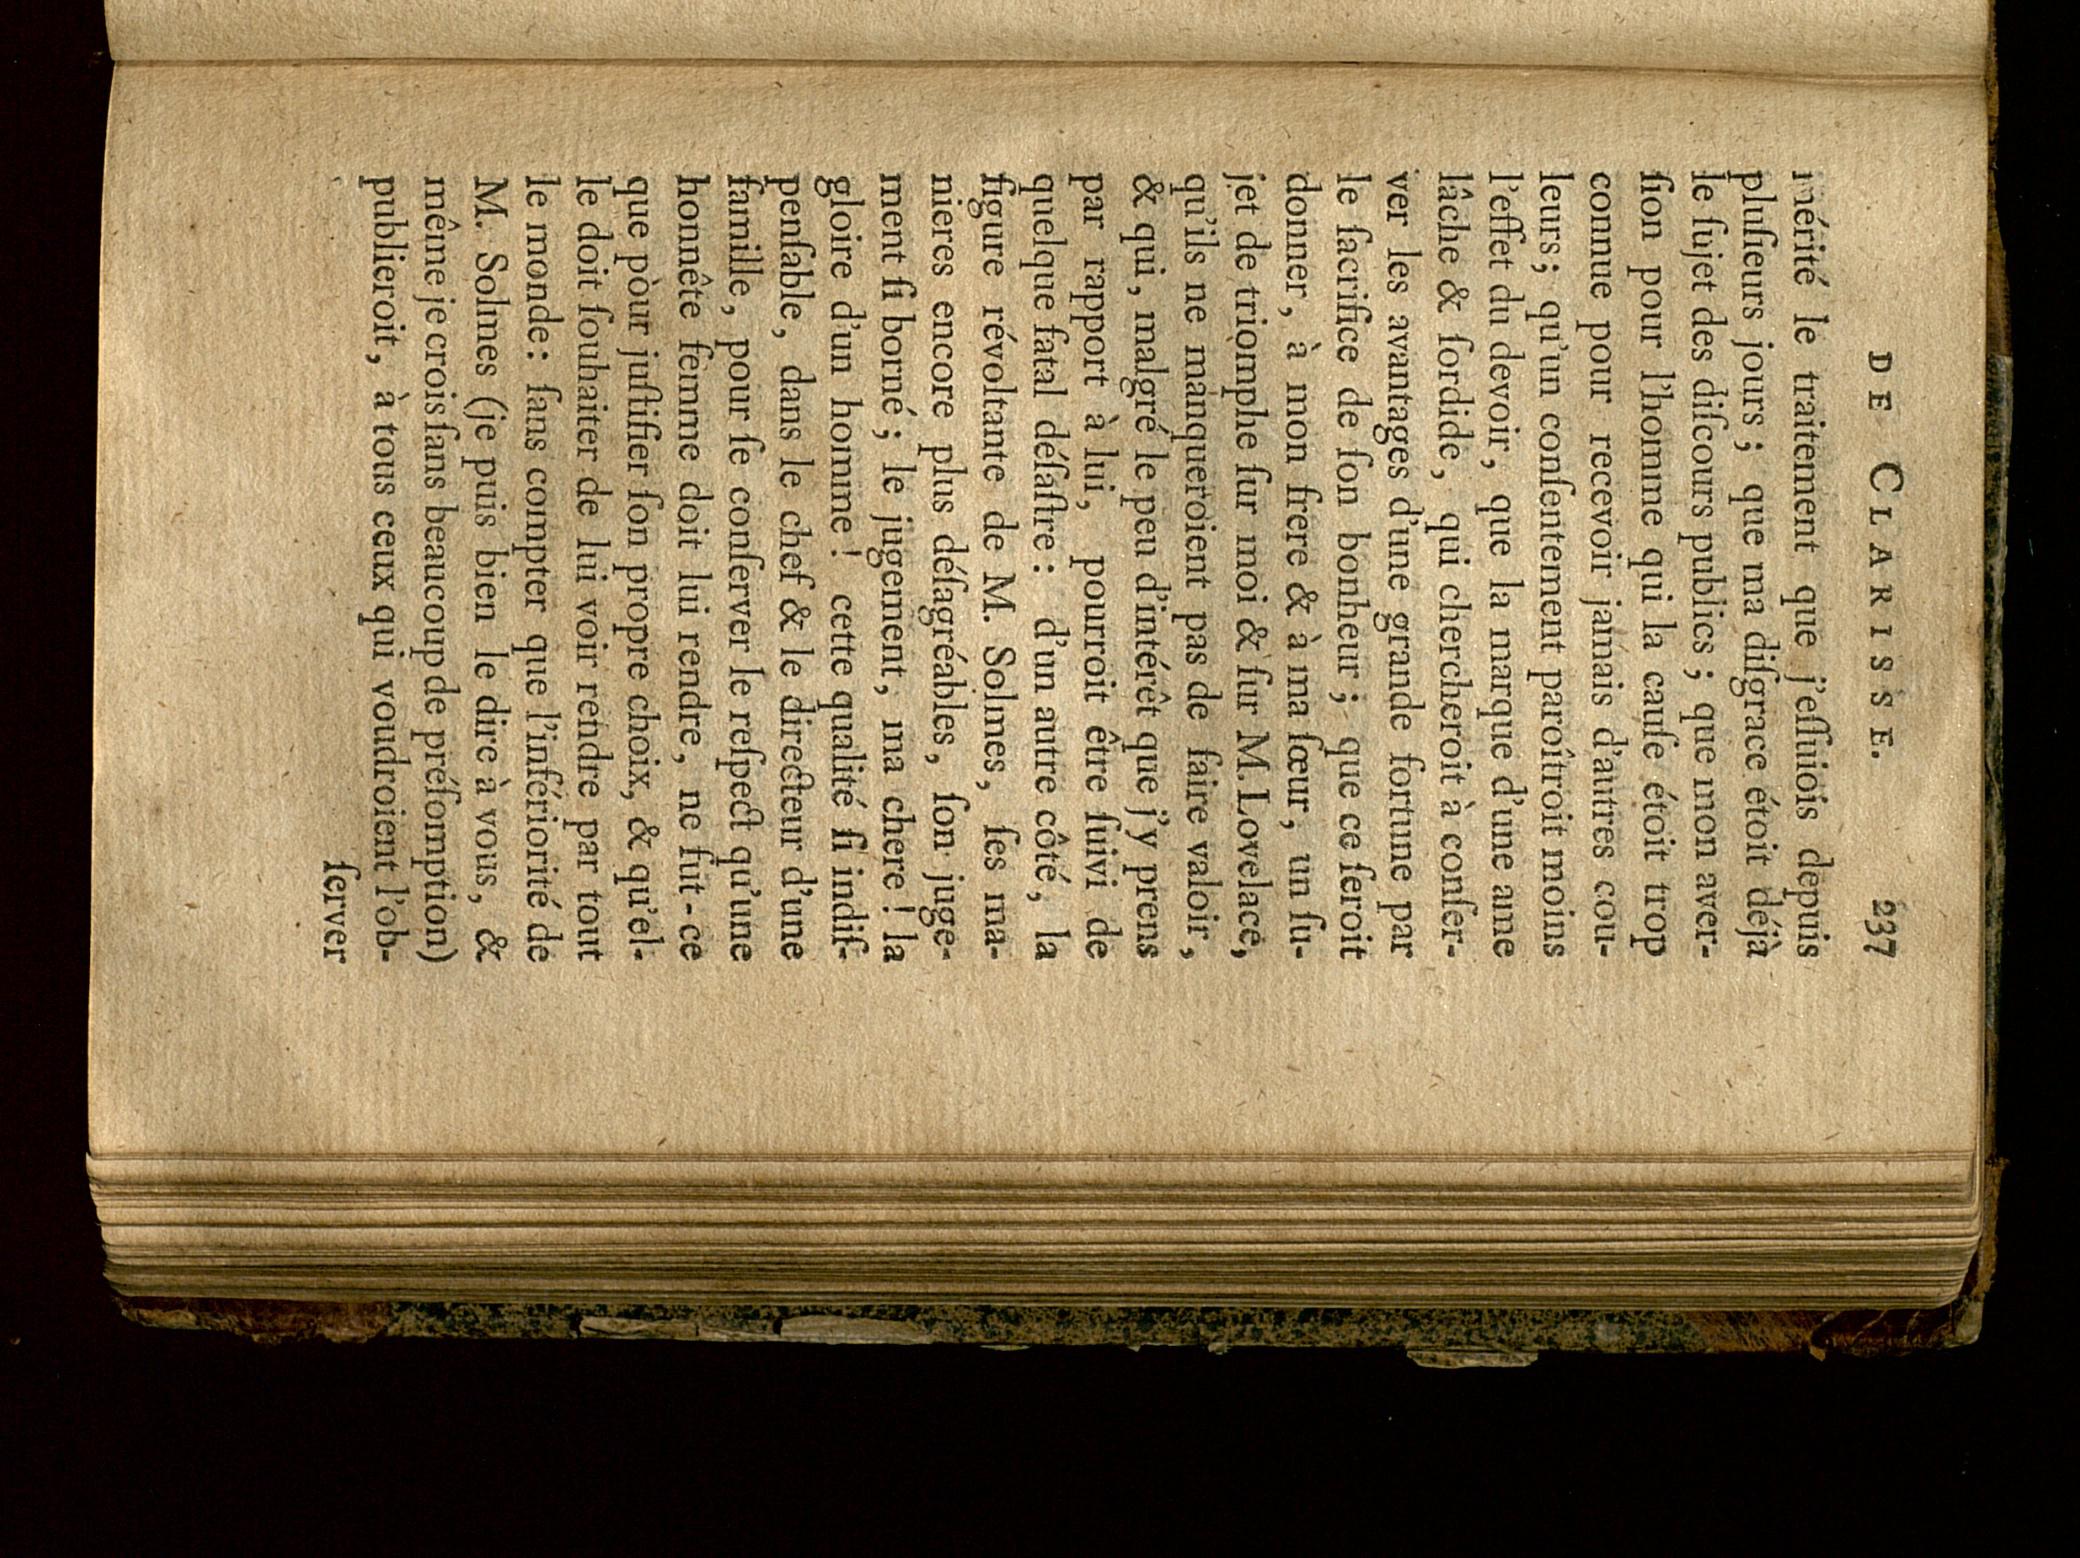 DE CLARISSE. 237
mérité le traitement que j'eſſuiois depuis
pluſieurs jours; que ma diſgrace étoit déjà
le ſujet des diſcours publics; que mon aver-
ſion pour l'homme qui la cauſe étoit trop
connue pour recevoir jamais d'autres cou-
leurs; qu'un conſentement paroîtroit moins
l'effet du devoir, que la marque d'une ame
lâche & ſordide, qui chercheroit à conſer-
ver les avantages d'une grande fortune par
le ſacrifice de ſon bonheur; que ce ſeroit
donner, à mon frere & à ma ſœur, un ſu-
jet de triomphe ſur moi & ſur M. Lovelace,
qu'ils ne manqueroient pas de faire valoir,
& qui, malgré le peu d'intérêt que j'y prens
par rapport à lui, pourroit être ſuivi de
quelque fatal déſaſtre: d'un autre côté, la
figure révoltante de M. Solmes, ſes ma-
nieres encore plus déſagréables, ſon juge-
ment ſi borné; le jugement, ma chere! la
gloire d'un homme! cette qualité ſi indiſ-
penſable, dans le chef & le directeur d'une
famille, pour ſe conſerver le reſpect qu'une
honnête femme doit lui rendre, ne fut-ce
que pour juſtifier ſon propre choix, & qu'el-
le doit ſouhaiter de lui voir rendre par tout
le monde: ſans compter que l'infériorité de
M. Solmes (je puis bien le dire à vous, &
même je crois ſans beaucoup de préſomption)
publieroit, à tous ceux qui voudroient l'ob-
ſerver